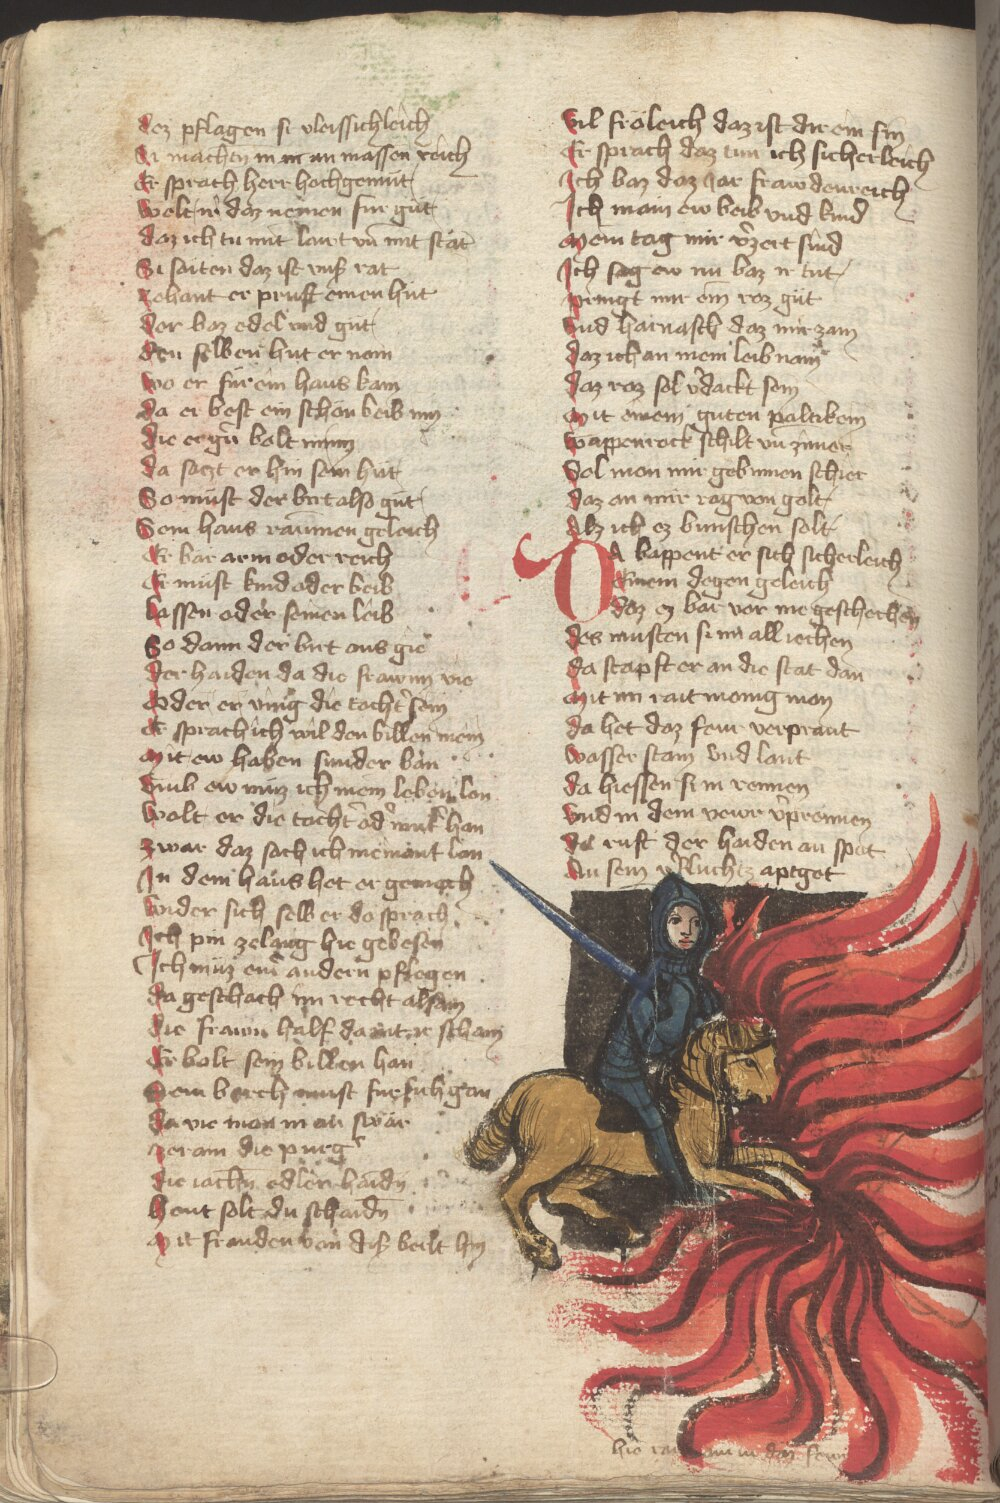 dez pflagen si vleissichleich
Si machten in in an massen reich
Er sprach herr hochgemut
Wolt ir daz nemen fur gut
daz ich tu mit laut vn mit stat
Si saiten daz ist vnß rat
zehant er pruft einen hut
Der baz edel vnd gut
den selben hut er nam
wo er für ein haus kam
da er best ein schon beib inn
die er gu bolt minn
da saczt er hin sein hut
So must der birt also gut
Sein haus raumen geleich
Er bar arm oder reich
Er must kind oder beib
lassen oder seinen leib
So dann der birt aus gie
der haiden da die frawnn vie
Oder er ving die tocht sein
Er sprach ich wil den billen mein
Mit ew haben sunder ban
Vmb ew muz ich mein leben lan
Wolt er die tocht od mut han
Zwar daz sach ich niemant lan
In dem haus het er gemach
wider sich selb er do sprach
Ich pin ze lang hie gebesen
Ich muz ein andern pflegen
da geschach im recht alsam
die frawn half da nit ir scham
Er bolt sein billen han
Dem berch must fur sich gan
da vie man in an swar
zeram die purg
die iachn edler haidn
heut solt du schaidn
Mit frauden von diß belt hin
Vil fröleich daz ist dir ein sin
Er sprach daz tun ich sicherleich
Ich baz daz iar frawdenreich
Ich main ew beib vnd kind
Mein tag mir vzert sind
Ich sag ew nu baz ir tut
pringt mir ein roz gut
Vnd harnasch daz mir zam
daz ich an mein leib nam
daz roz sol vdackt sein
Mit einem guten paltikein
wappenrock schilt vn zimer
Sol man mir gebinnen schier
daz an mir rag von golt
Alz ich ez bunschen solt
DA bappent er sich sicherleich
Einem degen geleich
daz ez bar vor nie geschechen
des musten si im all iechen
da stapft er an die stat dan
Mit im rait manig man
da het daz feur verprant
wasser stain vnd lant
da hiessen si in rennen
Vnd in dem vewr vprennen
Do ruft der haiden an spot
An sein vfluchtz aptgot
hie rait ... in daz fewr